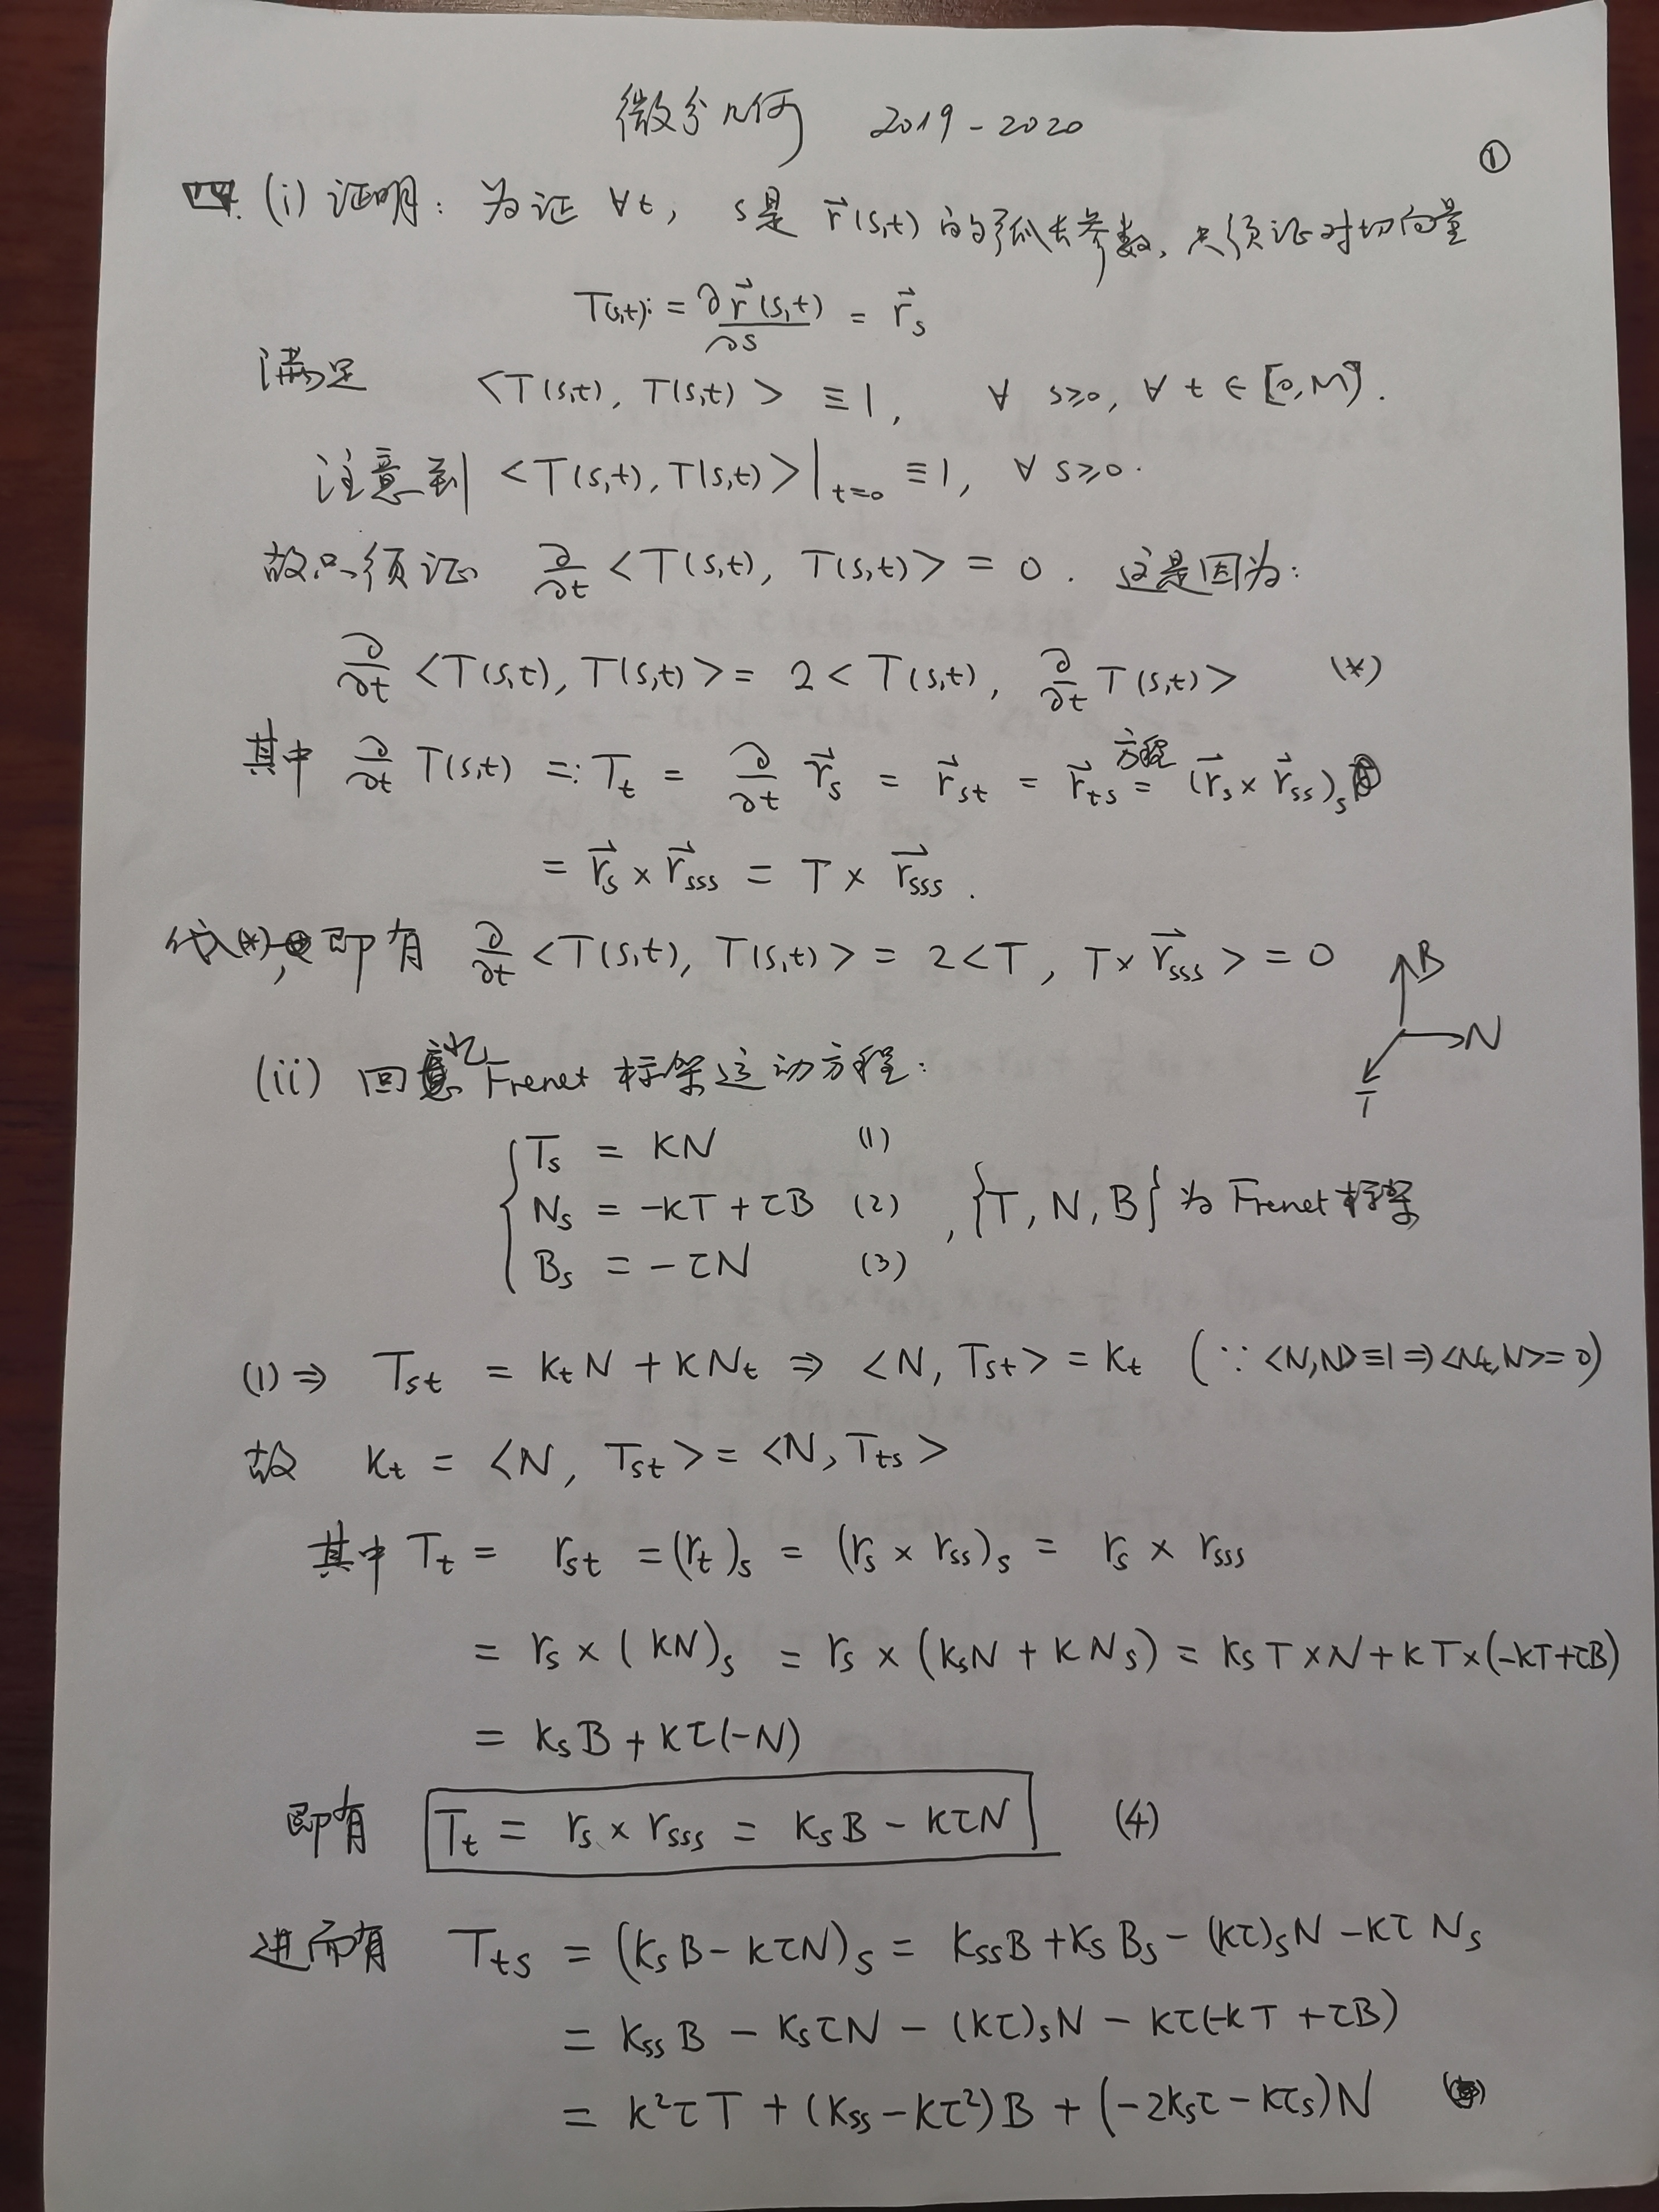 微分几何 2019-2020
①
四. (i) 证明: 为证 ∀t, s是 r⃗(s,t) 的弧长参数, 只须证对切向量
T(s,t): = ∂r⃗(s,t)/∂s = r⃗_s
满足 <T(s,t), T(s,t)> ≡ 1, ∀ s≥0, ∀ t ∈ [0,M).
注意到 <T(s,t), T(s,t)>|_{t=0} ≡ 1, ∀ s≥0.
故只须证 ∂/∂t <T(s,t), T(s,t)> = 0. 这是因为:
∂/∂t <T(s,t), T(s,t)> = 2<T(s,t), ∂/∂t T(s,t)> (*)
其中 ∂/∂t T(s,t) =: T_t = ∂/∂t r⃗_s = r⃗_st = r⃗_ts 方程= (r⃗_s × r⃗_ss)_s
= r⃗_s × r⃗_sss = T × r⃗_sss.
代入(*), 即有 ∂/∂t <T(s,t), T(s,t)> = 2<T, T× r⃗_sss> = 0
B
N
T
(ii) 回忆 Frenet 标架运动方程:
T_s = κN (1)
N_s = -κT + τB (2) , {T, N, B} 为 Frenet 标架
B_s = -τN (3)
(1) ⇒ T_st = κ_t N + κN_t ⇒ <N, T_st> = κ_t (∵ <N,N>≡1 ⇒ <N_t,N>=0)
故 κ_t = <N, T_st> = <N, T_ts>
其中 T_t = r_st = (r_t)_s = (r_s × r_ss)_s = r_s × r_sss
= r_s × (κN)_s = r_s × (κ_s N + κ N_s) = κ_s T×N + κT×(-κT+τB)
= κ_s B + κτ(-N)
即有 T_t = r_s × r_sss = κ_s B - κτN (4)
进而有 T_ts = (κ_s B - κτN)_s = κ_ss B + κ_s B_s - (κτ)_s N - κτ N_s
= κ_ss B - κ_s τN - (κτ)_s N - κτ(-κT + τB)
= κ²τ T + (κ_ss - κτ²) B + (-2κ_s τ - κτ_s) N